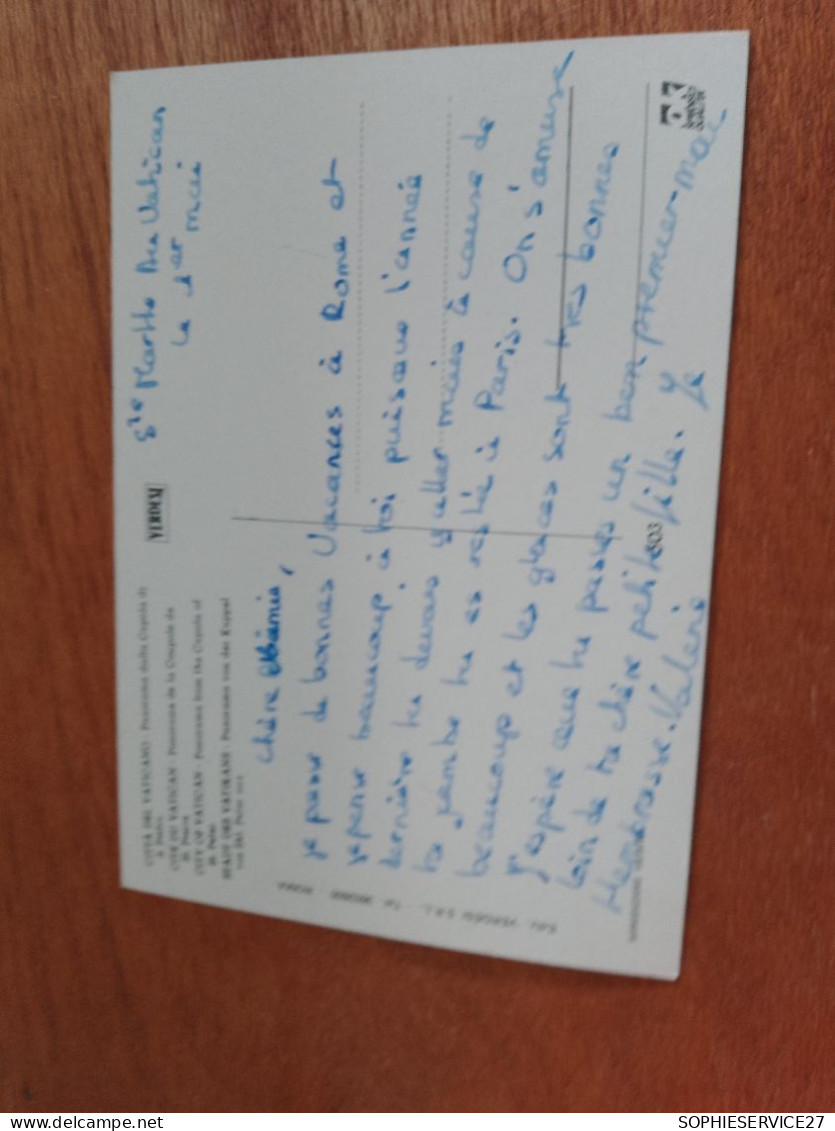 CITTÀ DEL VATICANO - Panorama dalla Cupola di
S. Pietro
CITÉ DU VATICAN - Panorama de la Coupole de
St. Pierre
CITY OF VATICAN - Panorama from the Cupola of
St. Peter
STADT DES VATIKANS - Panorama von der Kuppel
von Skt. Peter aus
VERDESI
Ste Marthe au Vatican
le 1er mai
Chère Mémie,
je passe de bonnes vacances à Rome et
je pense beaucoup à toi puisque l'année
dernière tu devais y aller mais à cause de
ta jambe tu es resté à Paris. On s'amuse
beaucoup et les glaces sont très bonnes
J'espère que tu passes un bon premier mai
loin de ta chère petite fille. Je
t'embrasse. Valérie
503
Ediz. VERDESI S.R.L. - Tel. ROMA
SOPHIESERVICE27